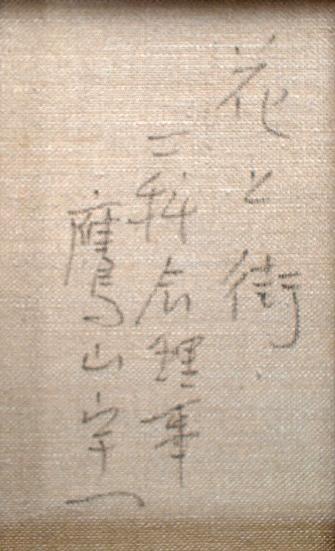 花と街
二科会理事
鷹山宇一